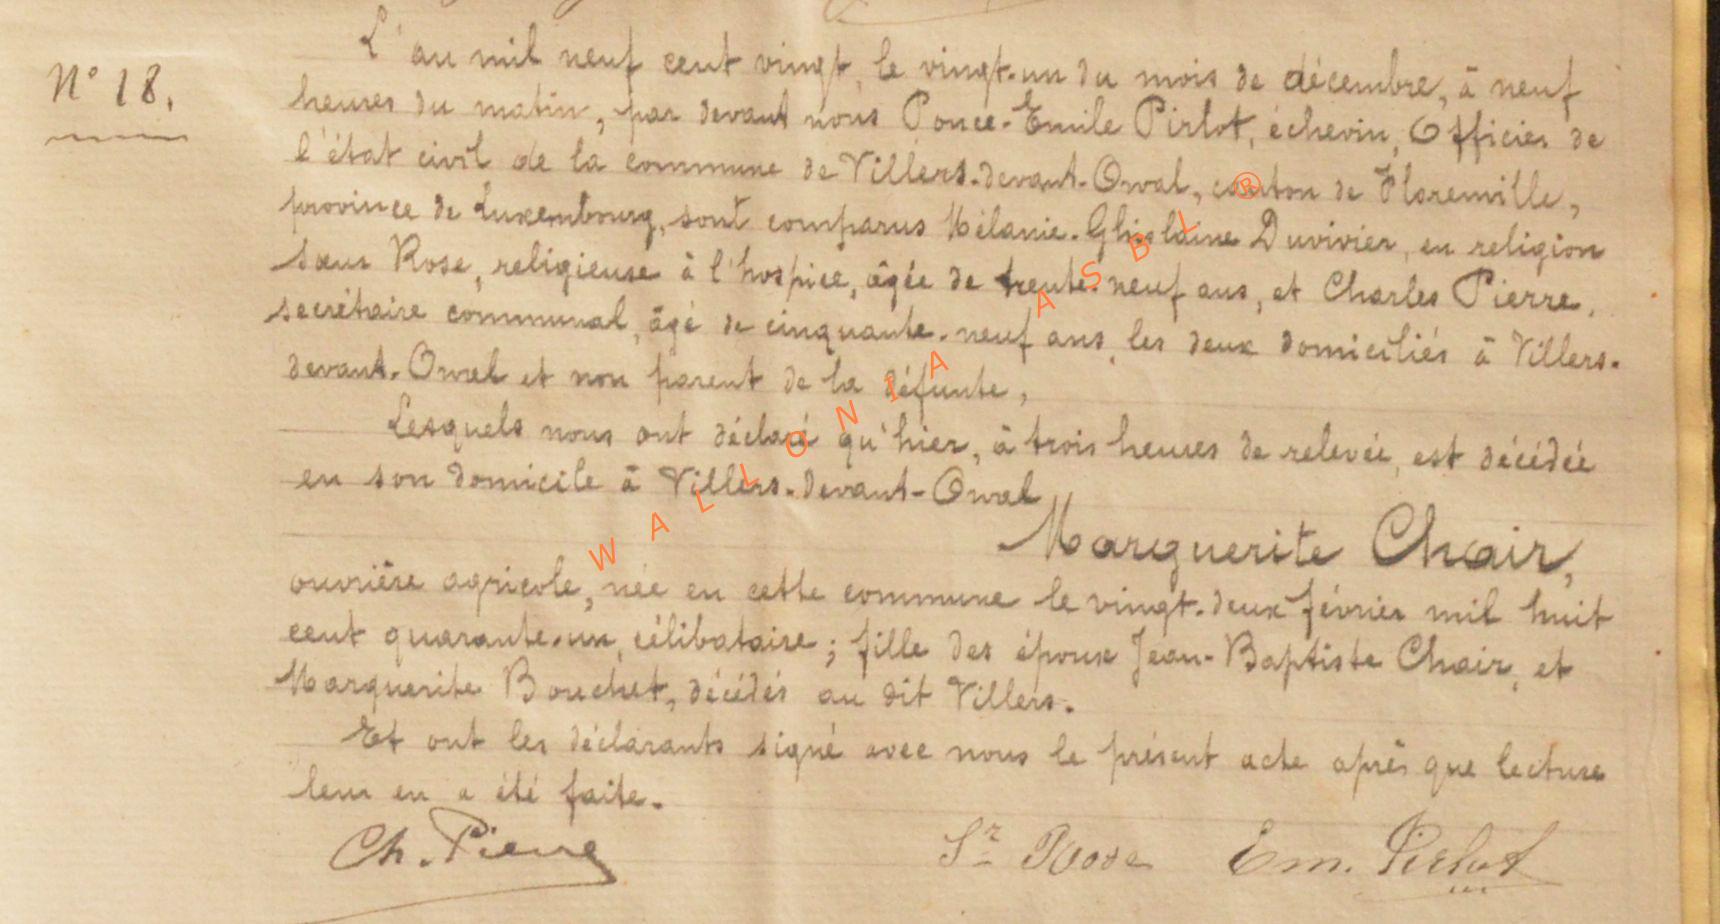 N° 18.
L'an mil neuf cent vingt, le vingt-un du mois de décembre, à neuf
heures du matin, par devant nous Ponce-Emile Pirlot, échevin, Officier de
l'état civil de la commune de Villers-devant-Orval, canton de Florenville,
province de Luxembourg, sont comparus Mélanie-Ghislaine Duvivier, en religion
sœur Rose, religieuse à l'hospice, âgée de trente-neuf ans, et Charles Pierre,
secrétaire communal, âgé de cinquante-neuf ans, les deux domiciliés à Villers-
devant-Orval et non parent de la défunte,
Lesquels nous ont déclaré qu'hier, à trois heures de relevée, est décédée
en son domicile à Villers-devant-Orval
Marguerite Chair,
ouvrière agricole, née en cette commune le vingt-deux février mil huit
cent quarante-un, célibataire; fille des époux Jean-Baptiste Chair, et
Marguerite Bouchet, décédés au dit Villers.
Et ont les déclarants signé avec nous le présent acte après que lecture
leur en a été faite.
Ch. Pierre Sr Rose Em. Pirlot
WALLONIA ASBL ®